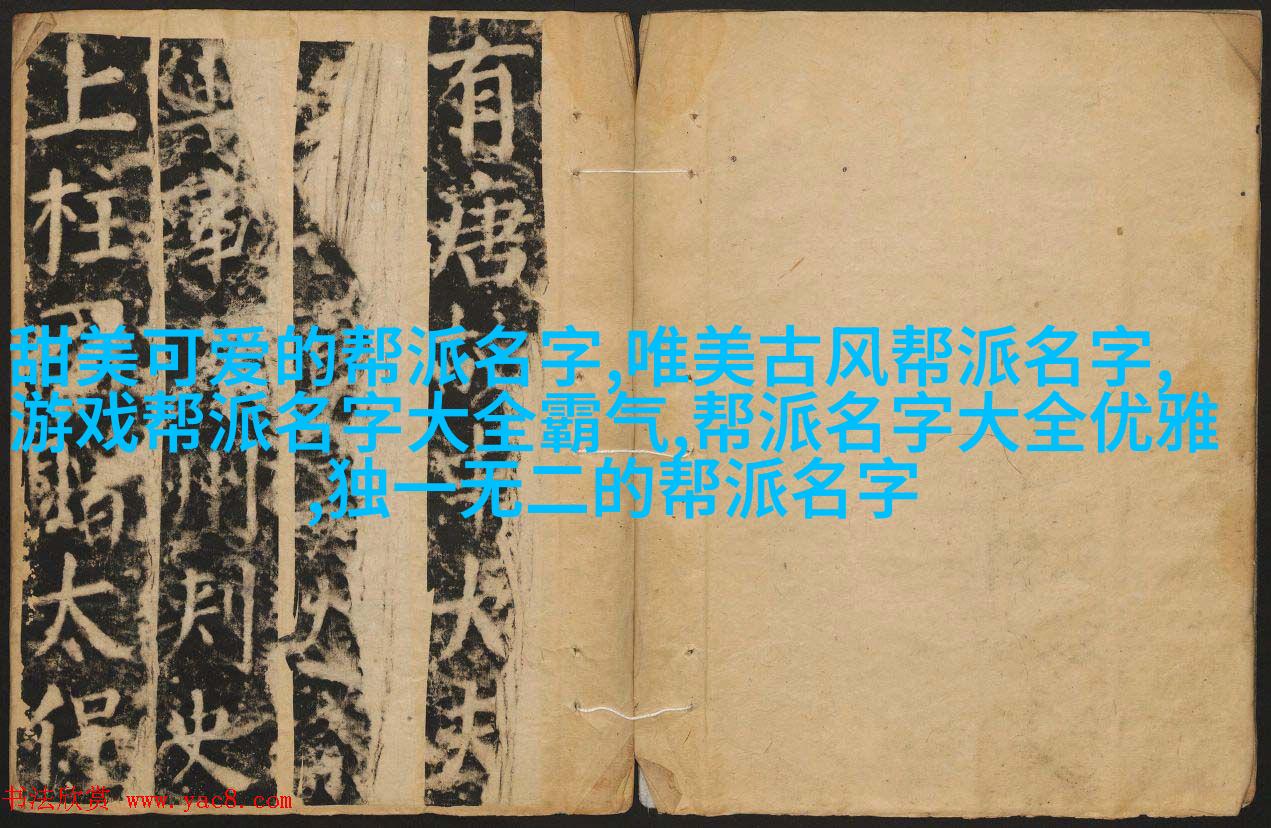 甜美可爱的帮派名字,唯美古风帮派名字,
游戏帮派名字大全霸气,帮派名字大全优雅
,独一无二的帮派名字
有唐大夫
軍州刺史
上柱贈太保
书法欣赏 www.yac8.com